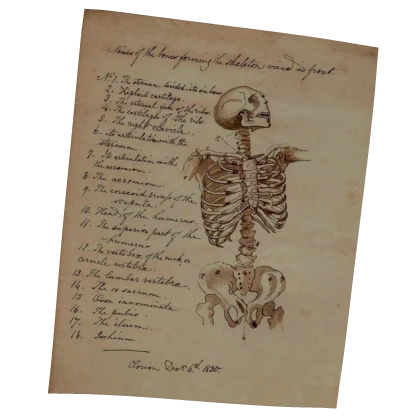 Names of the bones forming the skeleton viewed in front.
No 1. The sternum divided into six bones
2. Xiphoid cartilage.
3. The external side of the ribs.
4. The cartilages of the ribs.
5. The right clavicle.
6. Its articulation with the
sternum.
7. Its articulation with
the acromion.
8. The acromion.
9. The coracoid process of the
scapula.
10. Head of the humerus.
11. The superior part of the
humerus
12. The vertebræ of the neck or
cervicle vertebræ.
13. The lumbar vertebræ.
14. The os sacrum.
15. Ossa innominata
16. The pubis.
17. The ilium.
18. Ischium.
Dec. 5th 1830.